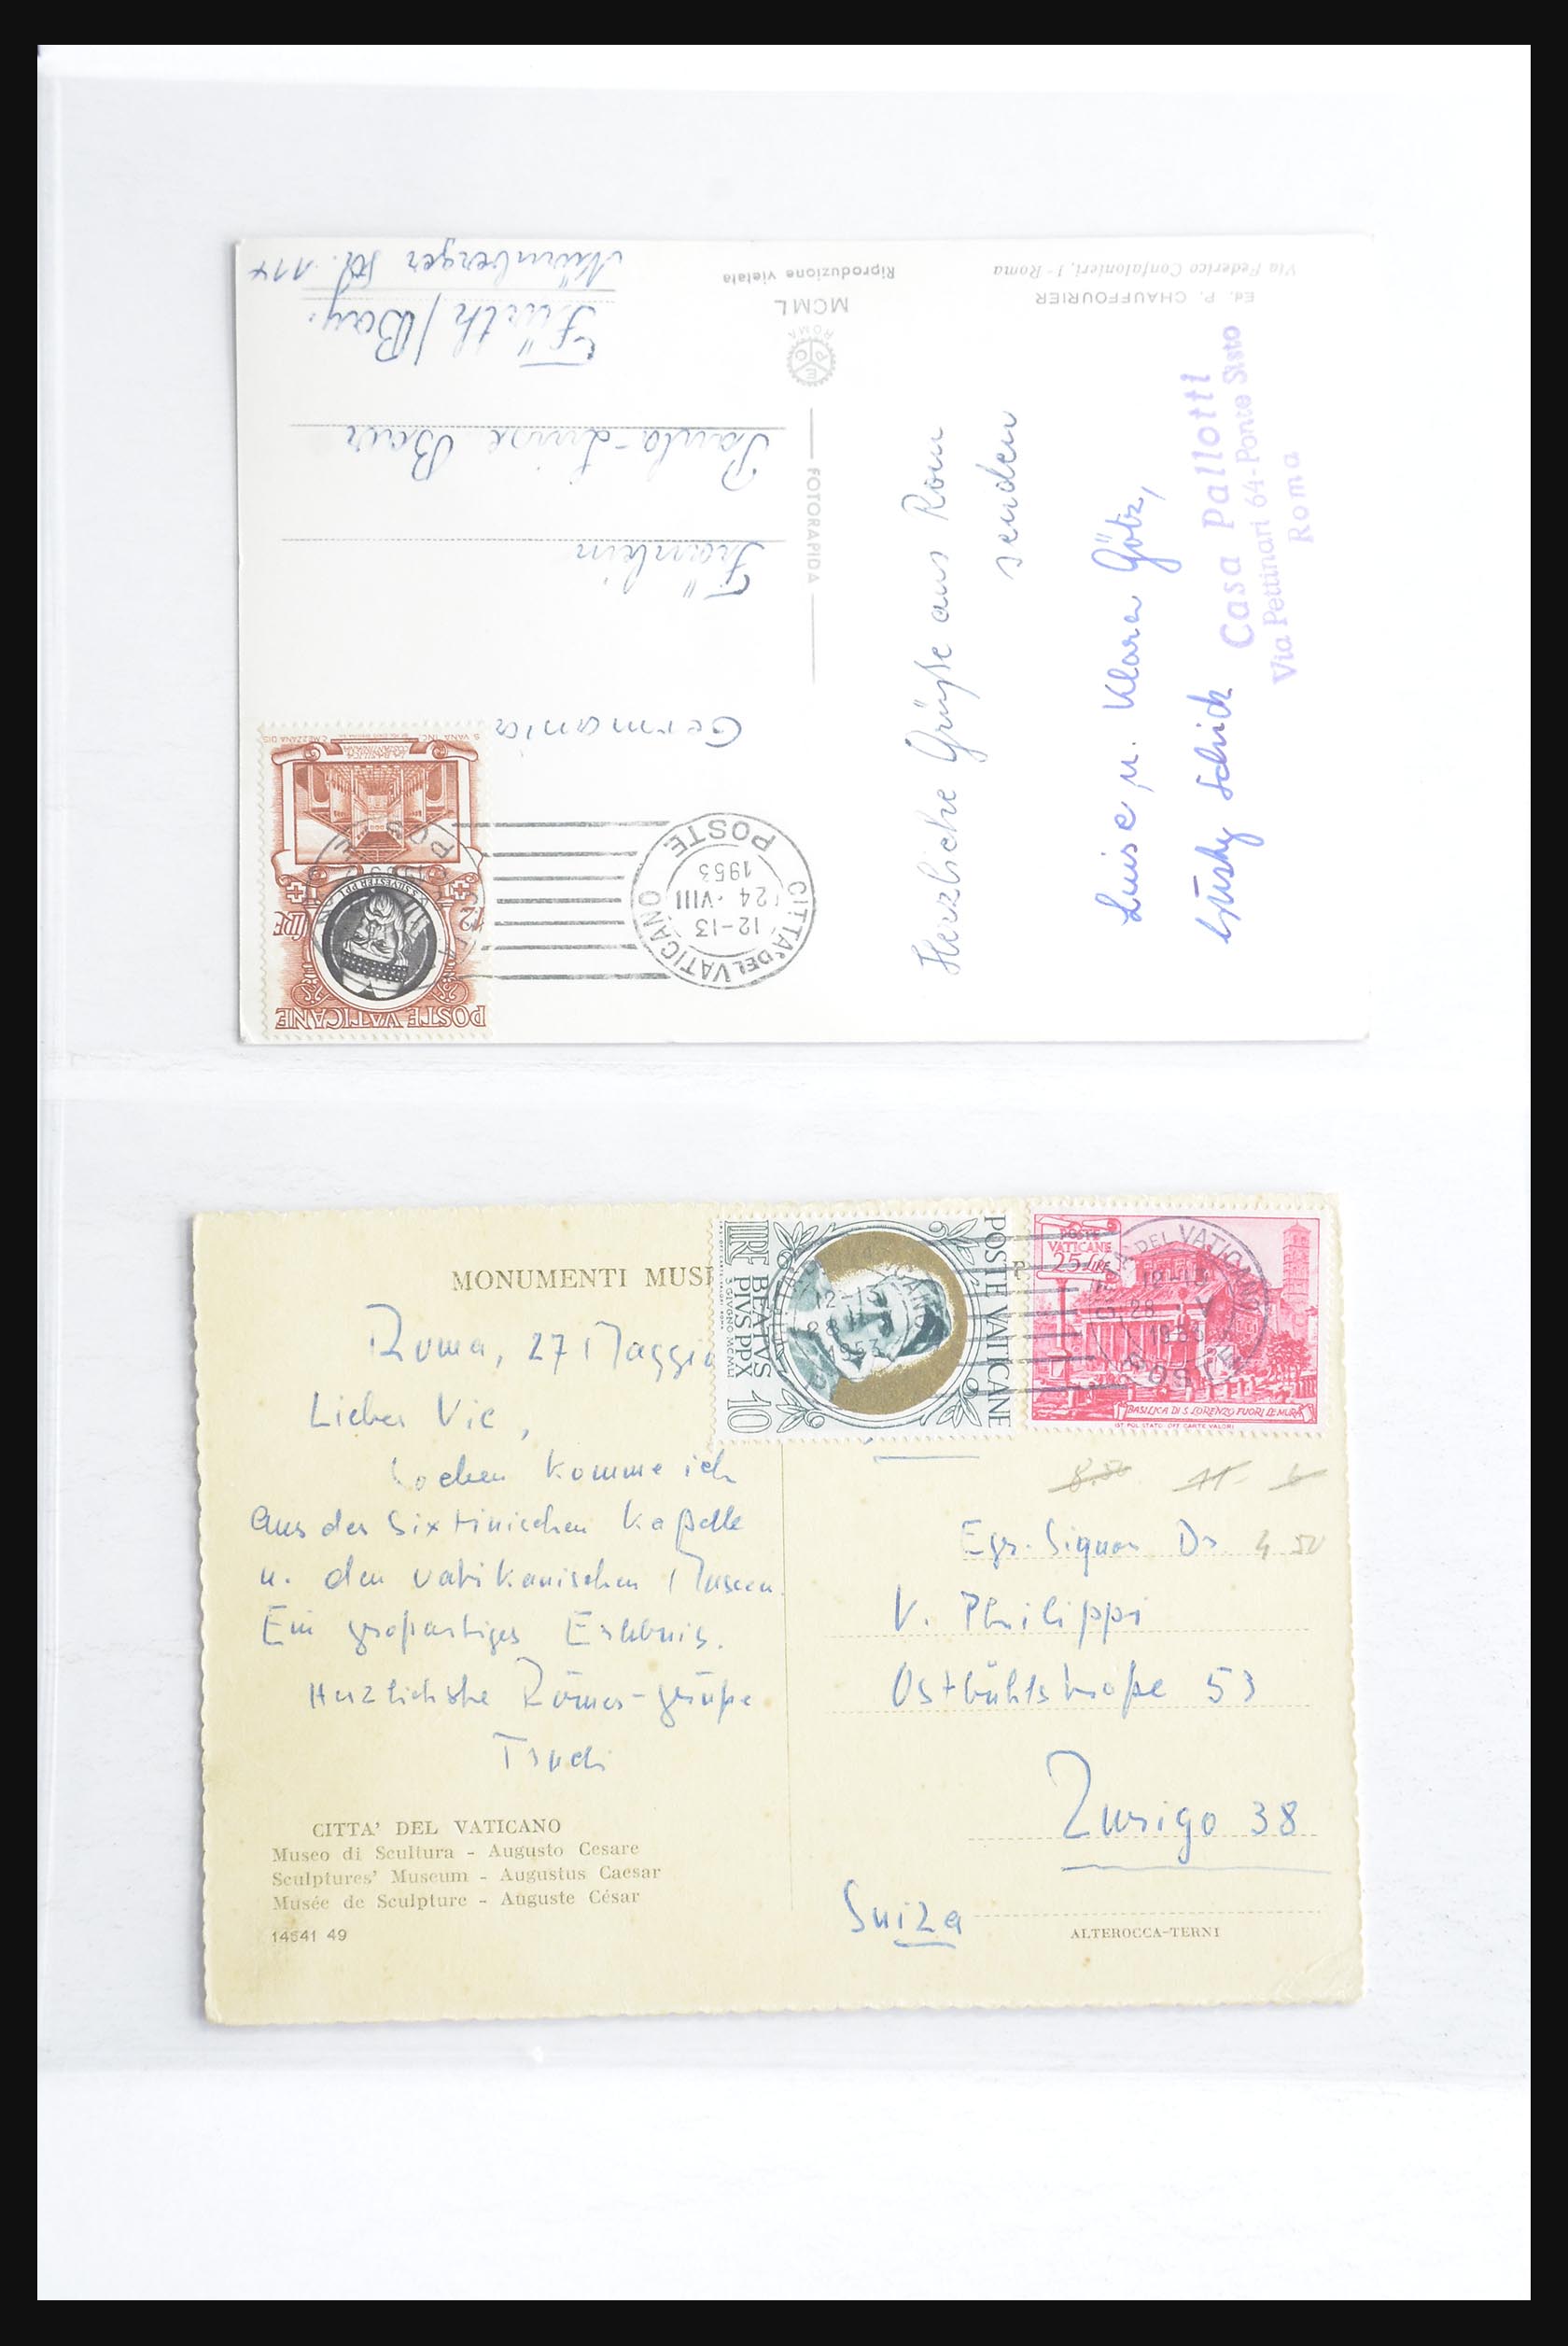 Nürnberger Str. 114
Fürth/Bay.
Paula-Luise Baur
Fräulein
Germania
Riproduzione vietata
MCML
ROMA
FOTORAPIDA
Via Federico Confalonieri, 1 - Roma
Ed. P. CHAUFFOURIER
Herzliche Grüße aus Rom
senden
Luise u. Klara Götz,
Schick
Casa Pallotti
Via Pettinari 64-Ponte Sisto
Roma
POSTE VATICANE
12 LIRE
S. SILVESTER PP I
S. VANA INC.
E. MEZZANA DIS.
CITTA' DEL VATICANO
12-13
24 · VIII
1953
POSTE
MONUMENTI MUSE
Roma, 27 Maggio
Lieber Vic,
Soeben komme ich
aus der Sixtinischen Kapelle
u. den vatikanischen Museen.
Ein großartiges Erlebnis.
Herzlichste Römer-grüße
Trudi
CITTA' DEL VATICANO
Museo di Scultura - Augusto Cesare
Sculptures' Museum - Augustus Caesar
Musée de Sculpture - Auguste César
14541 49
POSTE VATICANE
BEATVS
PIVS PP X
3 GIVGNO MCMLI
LIRE 10
POSTE
VATICANE
25 LIRE
BASILICA DI S. LORENZO FUORI LE MURA
IST. POL. STATO OFF. CARTE VALORI
CITTA' DEL VATICANO
12-13
28 V
1953
POSTE
8.50 11- 6
4 50
Egr. Signor Dr
V. Philippi
Ostbühlstraße 53
Zurigo 38
Suiza
ALTEROCCA-TERNI